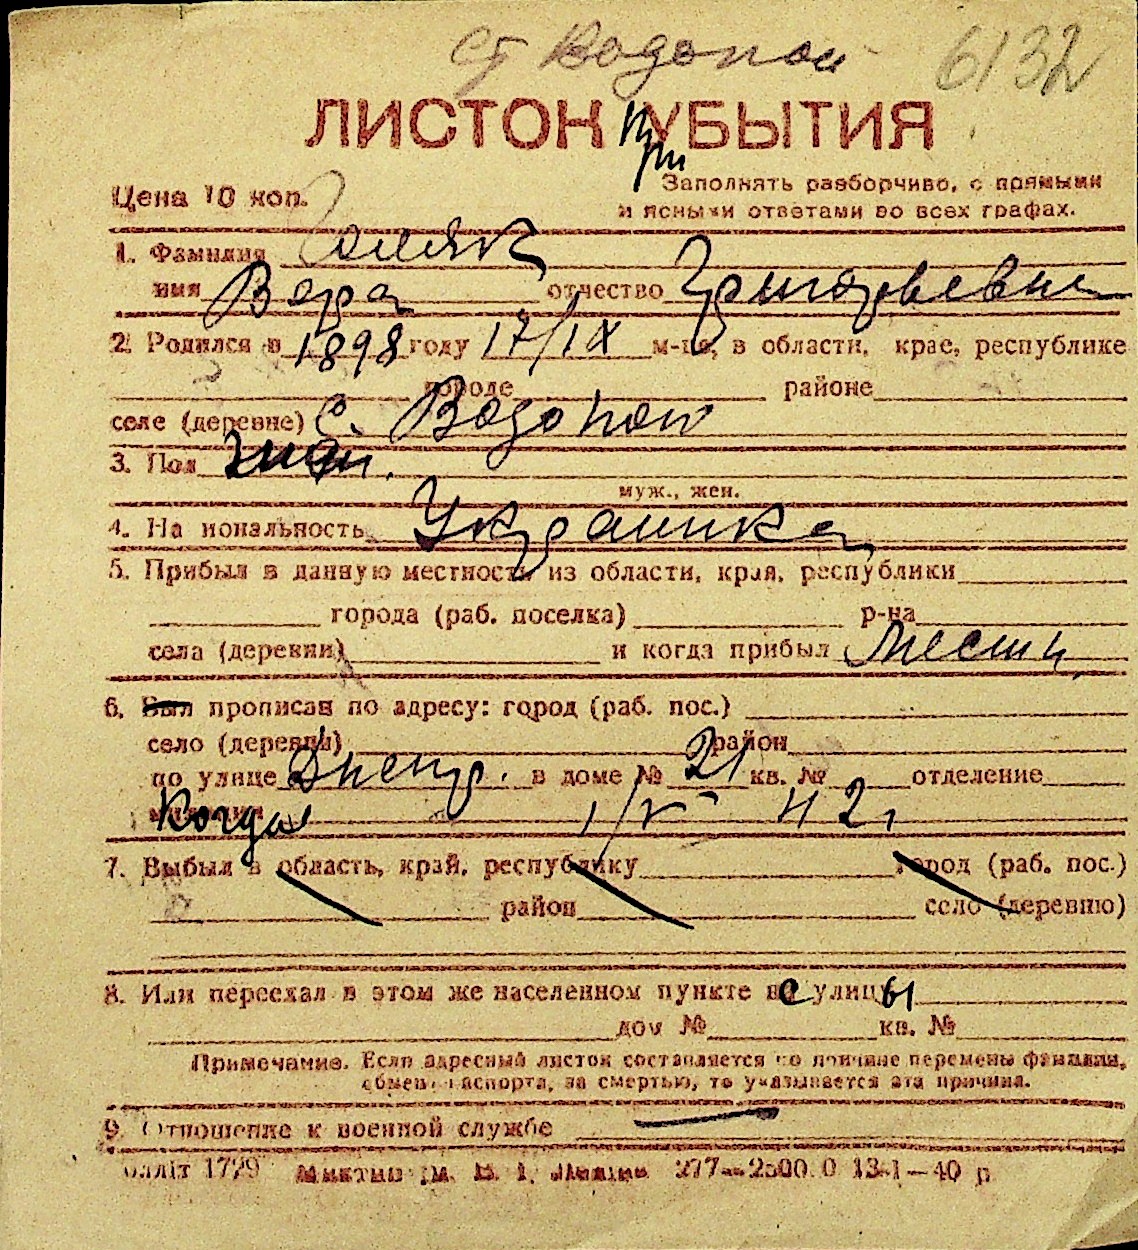 ст Водопой 6132
ЛИСТОК при УБЫТИЯ
Цена 10 коп.
Заполнять разборчиво, с прямыми
и ясными ответами во всех графах.
1. Фамилия
имя Вера отчество Григорьевна
2. Родился в 1898 году 17/IX м-ца, в области, крае, республике
городе районе
селе (деревне) с. Водопой
3. Пол жен.
муж., жен.
4. На иональность Украинка
5. Прибыл в данную местность из области, края, республики
города (раб. поселка) р-на
села (деревни) и когда прибыл местн.
6. Был прописан по адресу: город (раб. пос.)
село (деревня) район
по улице Днепр. в доме № 21 кв. № отделение
милиции Когда 1/V 42
7. Выбыл в область, край, республику город (раб. пос.)
район село (деревню)
8. Или переехал в этом же населенном пункте на с улицу ы
дом № кв. №
Примечание. Если адресный листок составляется по причине перемены фамилии,
обмен паспорта, за смертью, то указывается эта причина.
9. Отношение к военной службе
олліт 1729 277—2500.0 13-1—40 р